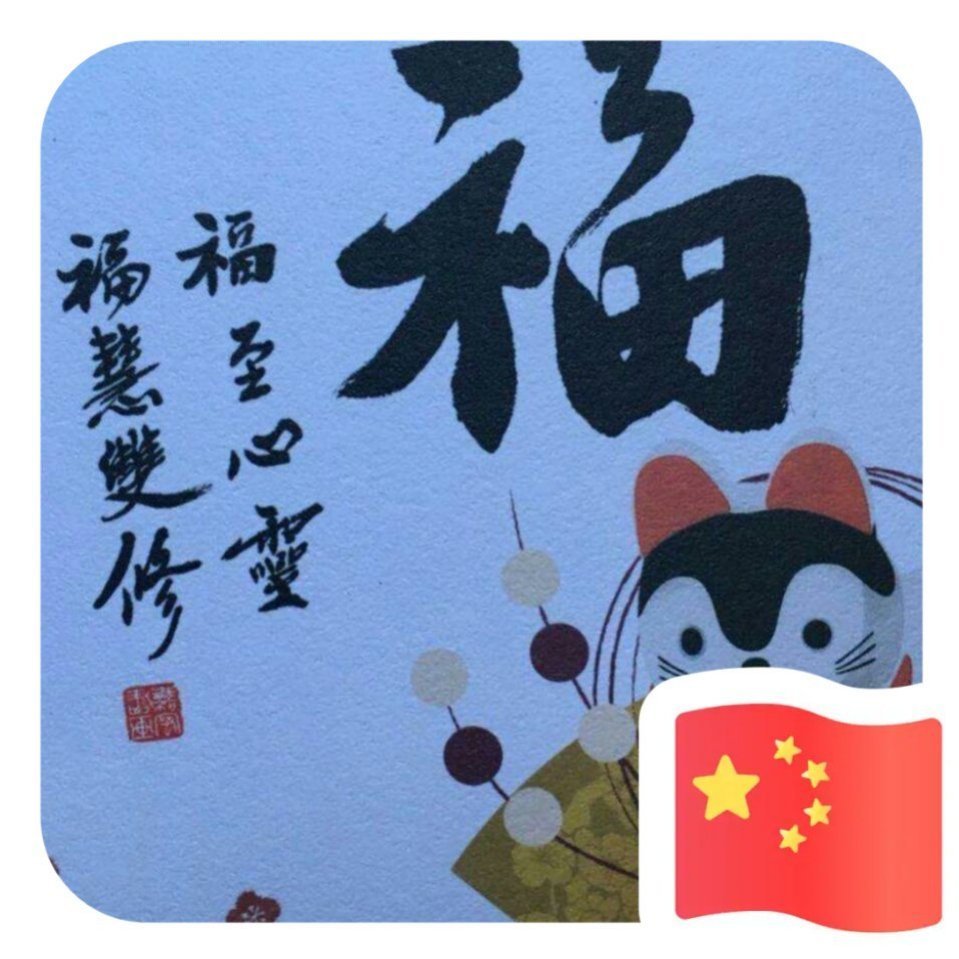 福
福至心靈
福慧雙修